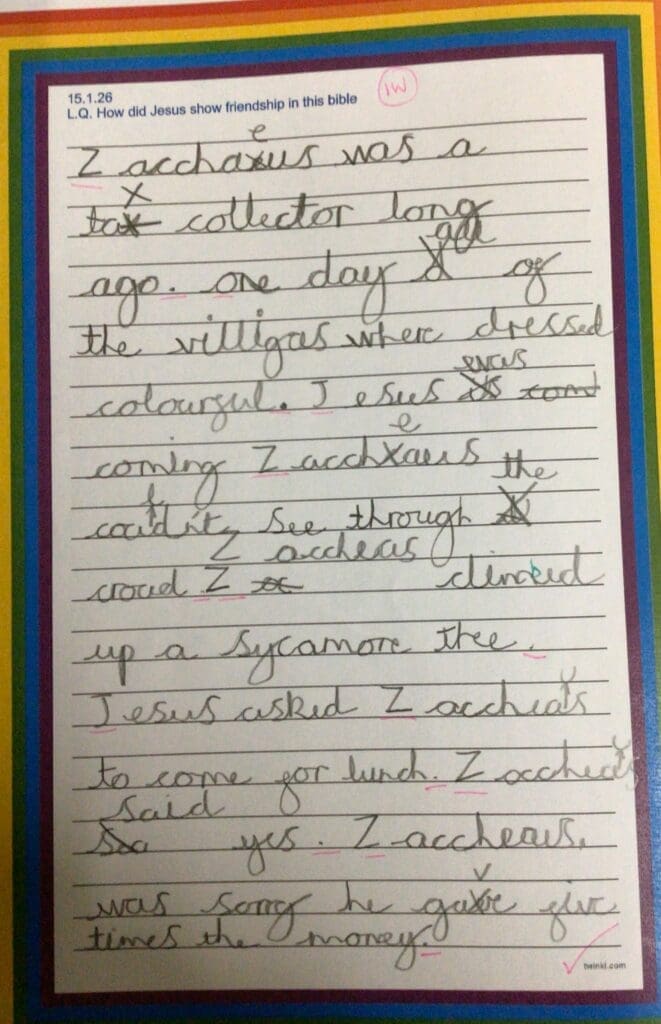 15.1.26
L.Q. How did Jesus show friendship in this bible
IW
Zacchaeus was a
tax collector long
ago. one day all of
the villigas where dressed
colourful. Jesus was
coming Zacchaeus
couldnt see through the
croud Zaccheas climbed
up a sycamore thee.
Jesus asked Zaccheus
to come for lunch. Zaccheus
said yes. Zaccheaus
was sorry he gave give
times the money.
twinkl.com